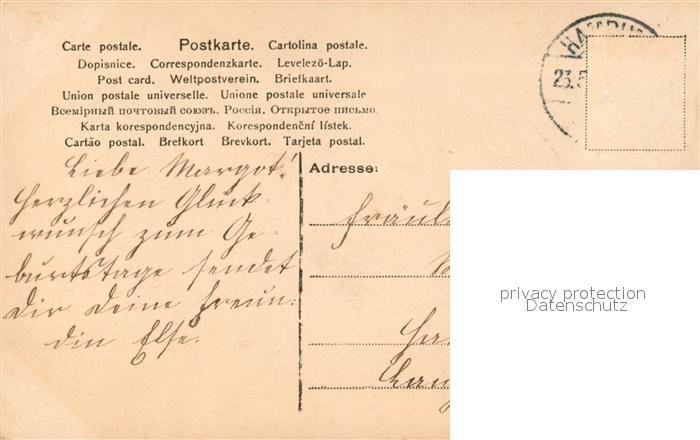 Carte postale. Postkarte. Cartolina postale.
Dopisnice. Correspondenzkarte. Levelező-Lap.
Post card. Weltpostverein. Briefkaart.
Union postale universelle. Unione postale universale
Всемірный почтовый союзъ. Россія. Открытое письмо.
Karta korespondencyjna. Korespondenční lístek.
Cartão postal. Brefkort Brevkort. Tarjeta postal.
HAMBU
23.5
Liebe Margot!
Herzlichen Glück-
wunsch zum Ge-
burtstage sendet
Dir Deine Freun-
din Else.
Adresse:
Fräul
privacy protection
Datenschutz